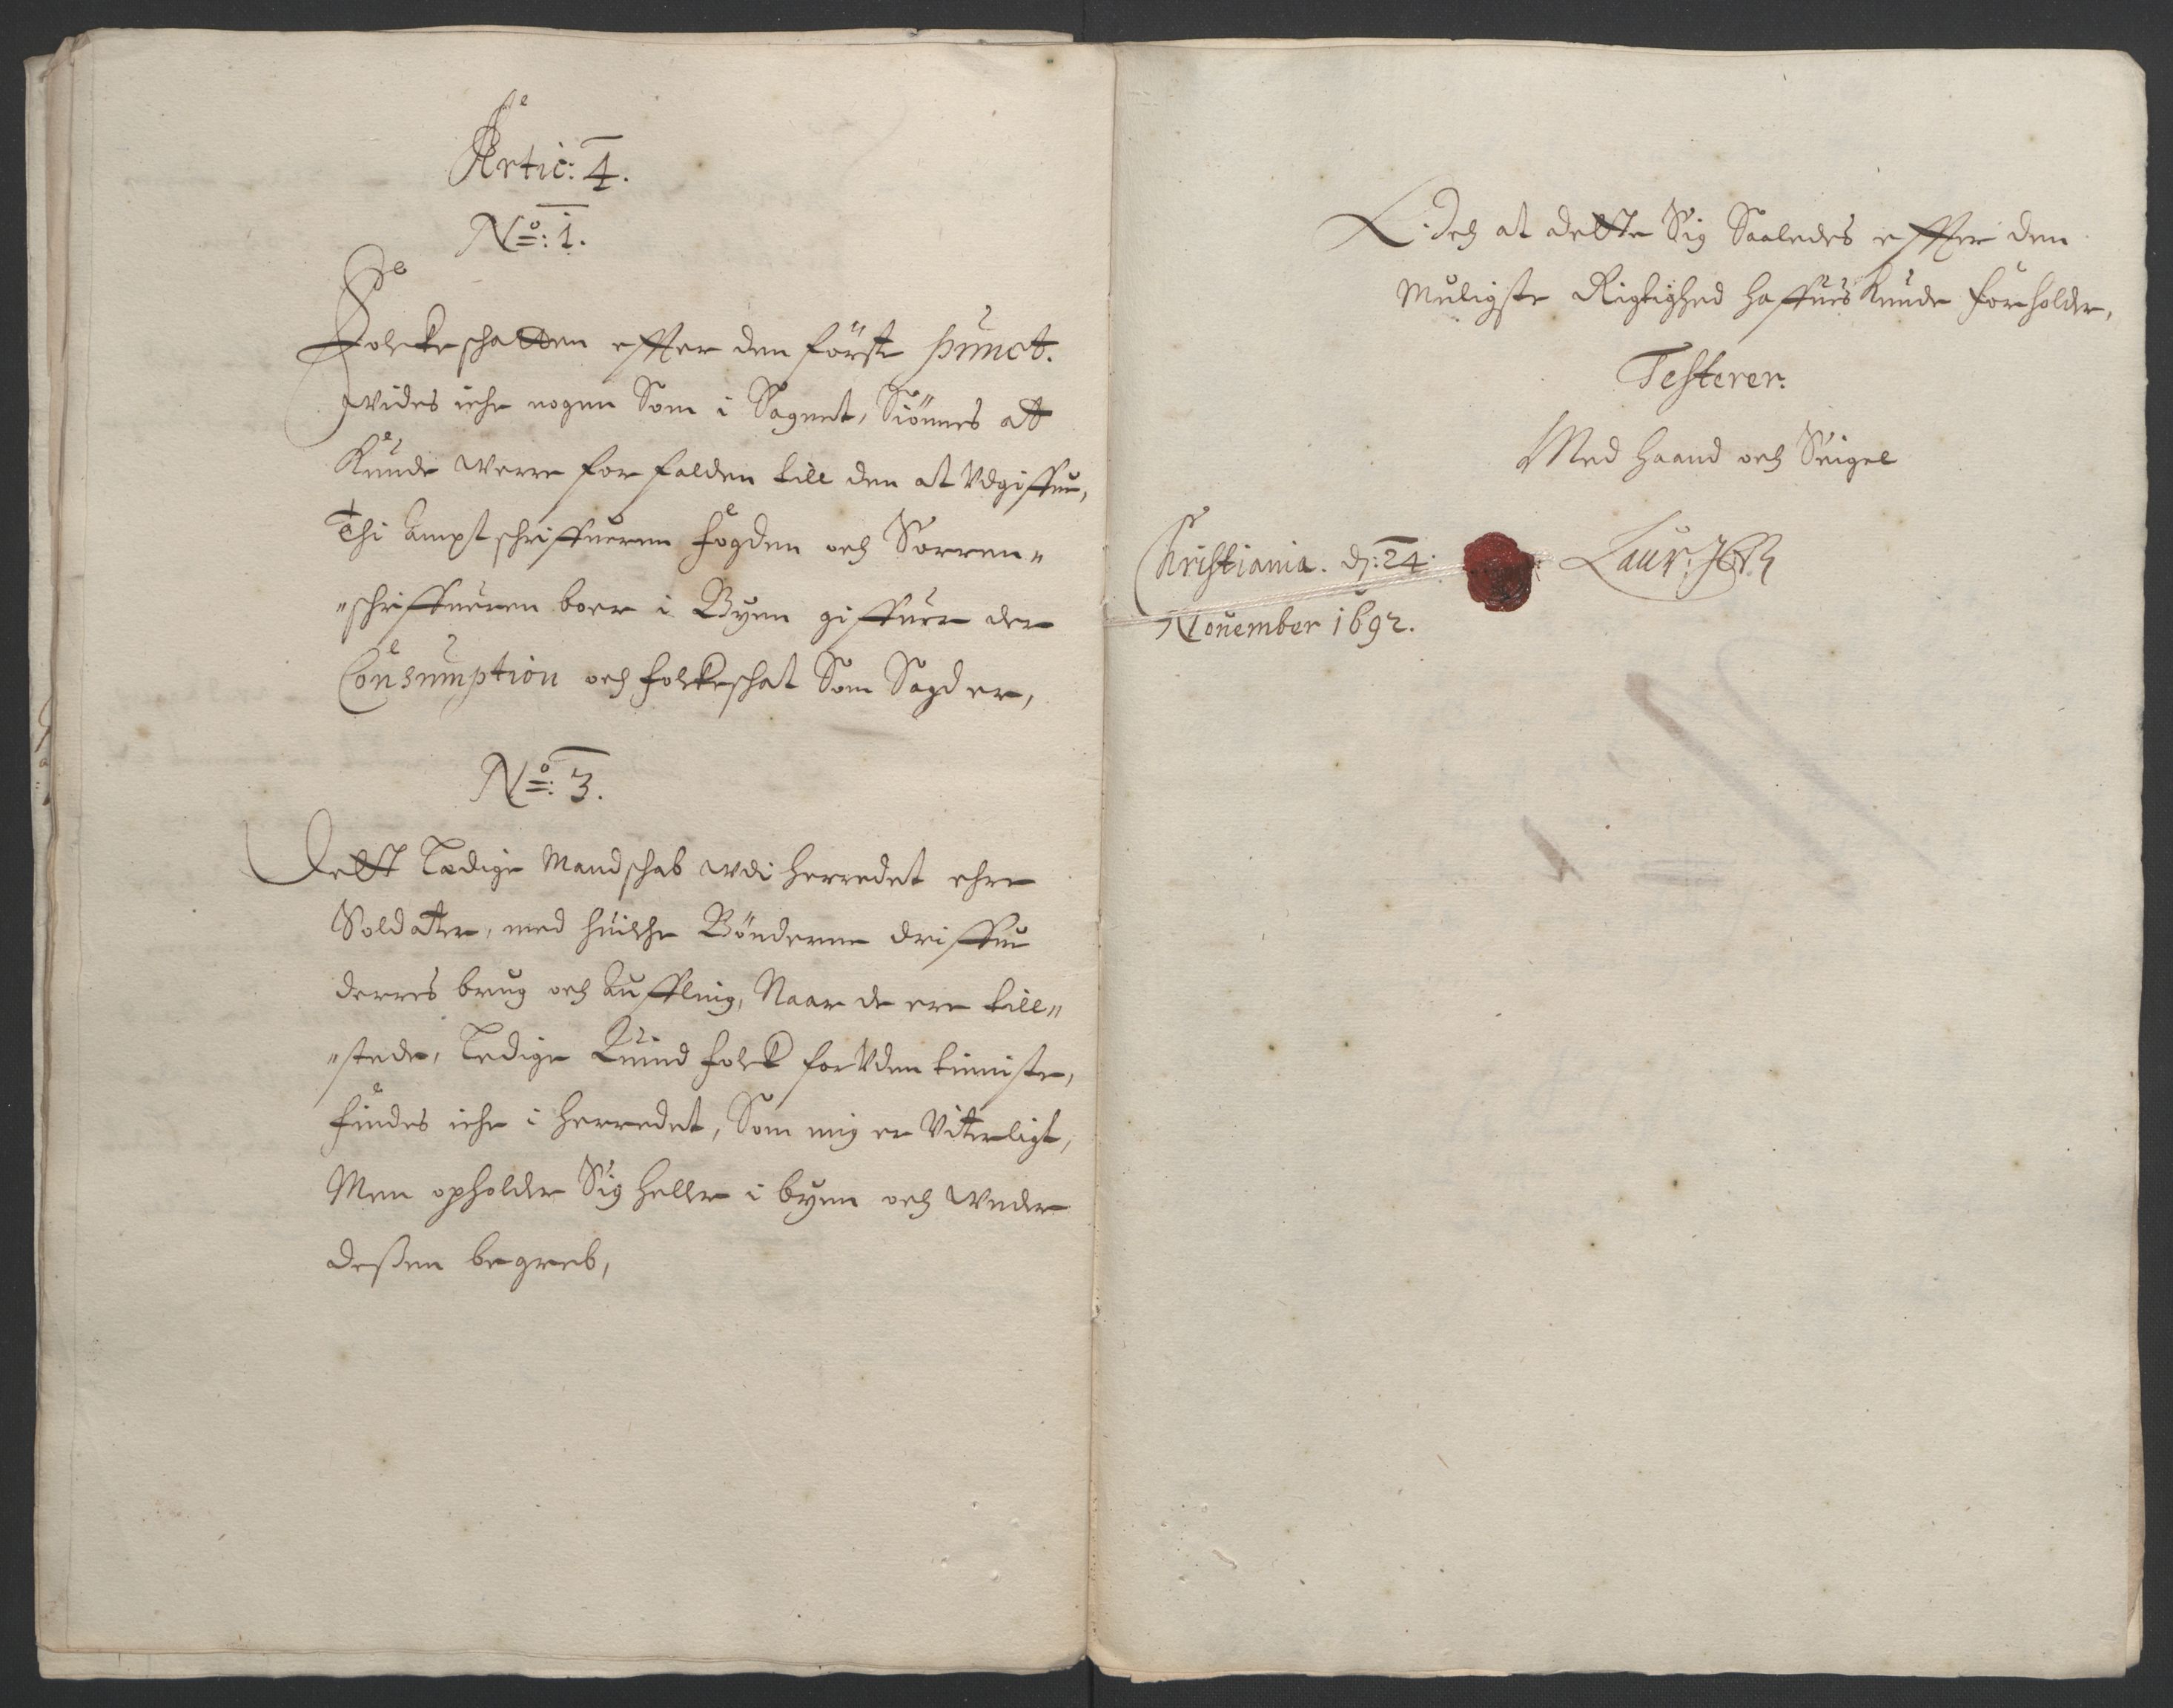 Artic: 4.
No: 1.
Folckeschatten effter den först punct.
vides iche nogen Som i Sognet, Siönnes att
Kunde verre forfalden till den at Udgiffue,
Thi Ampt schriffueren fogden och Sorren-
schriffueren boer i Byen giffuer der
Consumption och folckeschat Som Sagd er,
No: 3.
Dett Ledige Mandschab udi Herredet ehre
Soldatter, med huilche Bönderne driffue
derres brug och Auffling, Naar de ere till-
stede, Ledige Quind folck for Uden tienniste,
findes iche i Herredet, Som mig er Vitterligt,
Men opholder Sig heller i byen och under
dessen begreb,
och at dette Sig Saaledes effter den
Muligste Rigtighed haffues Kunde forholder,
Testerer.
Med Haand och Seigel
Christiania. d: 24.
Nouember 1692.
Laur: